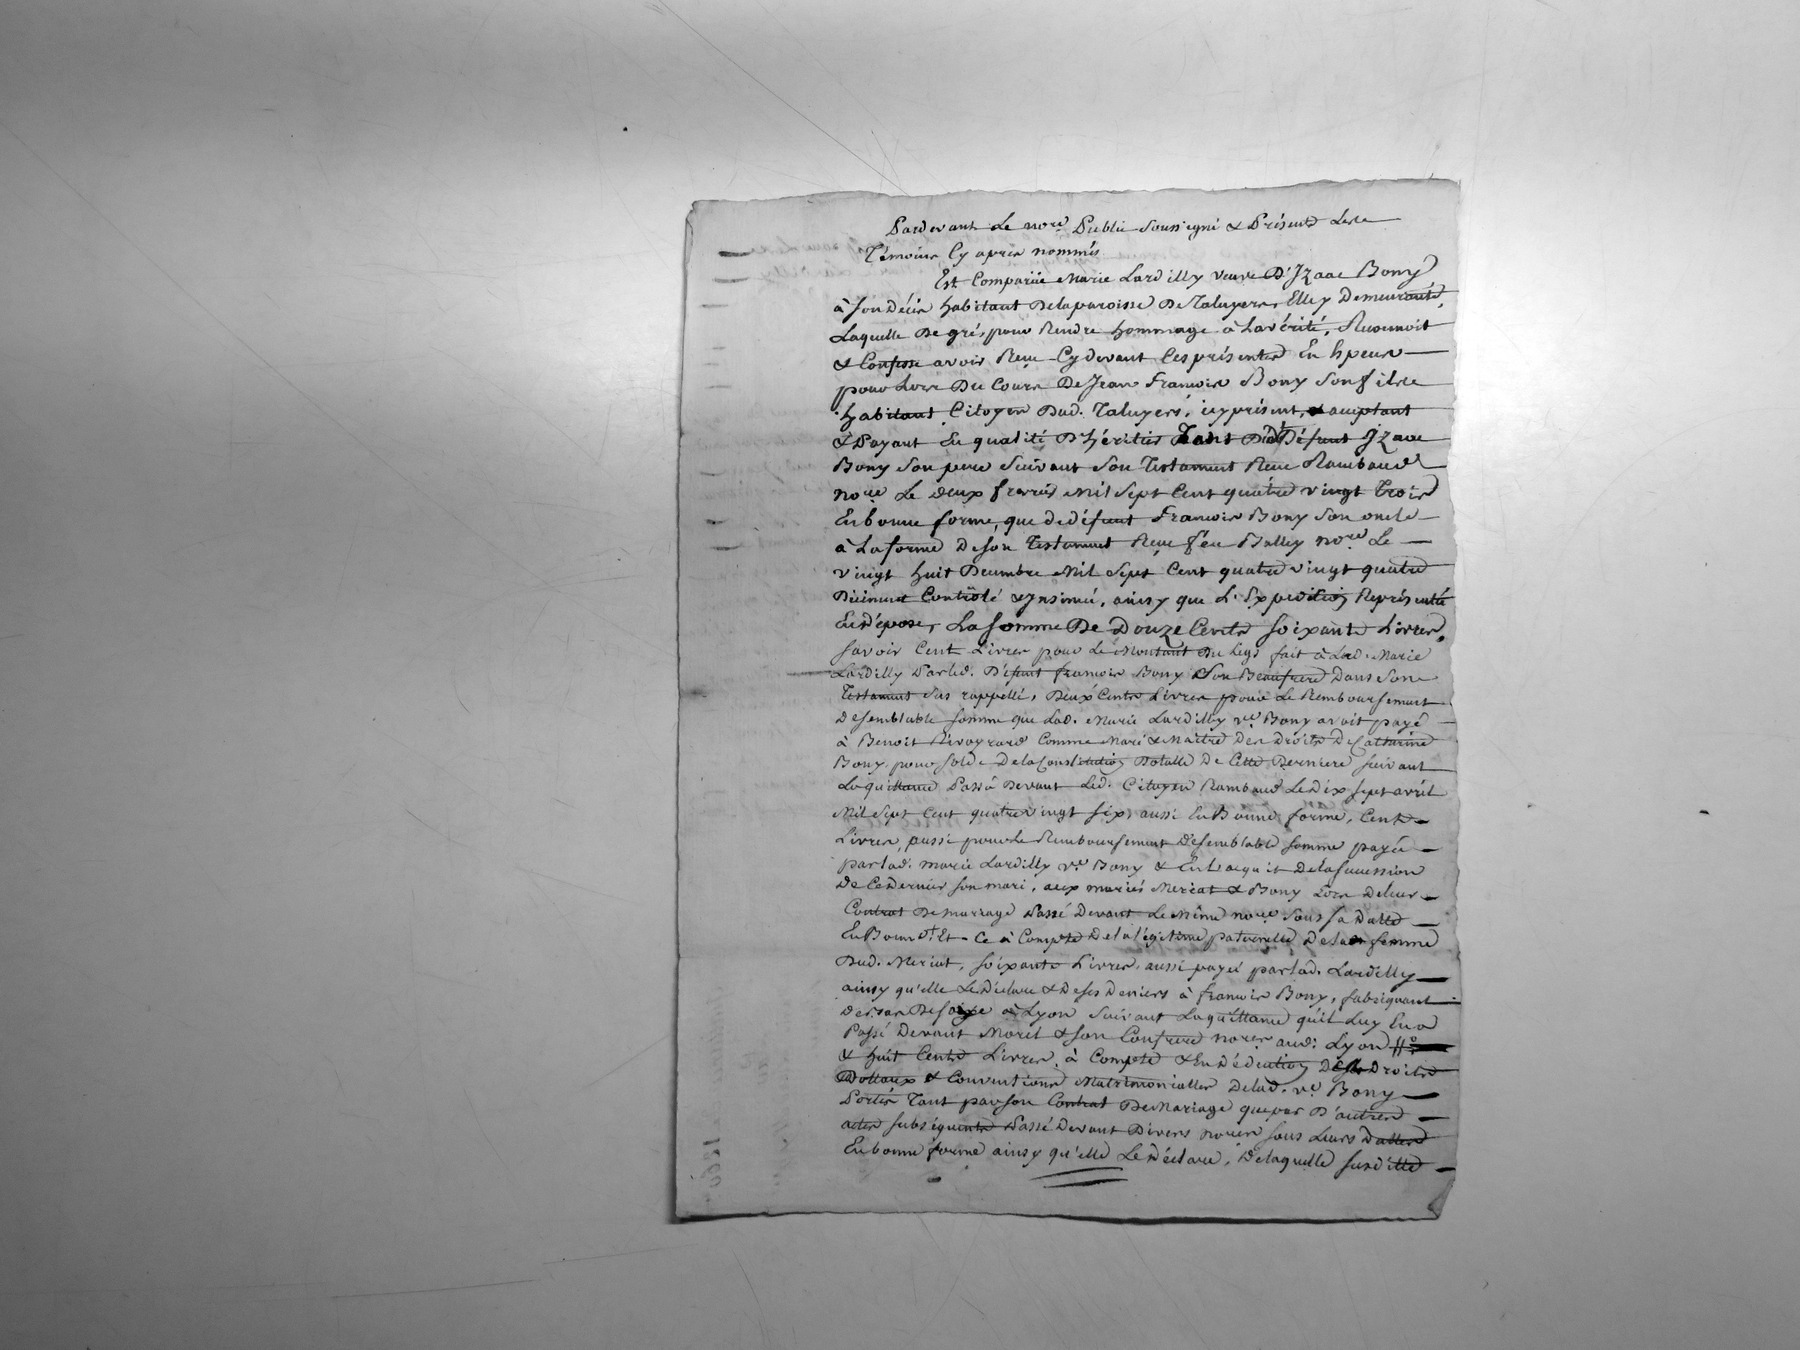 Pardevant Le nore. Public Soussigné & Présents Les
Témoins Cy apres nommés
Est Comparüe Marie Lardilly veuve D'Izaac Bony
à son Décès habitant Delaparoisse De Taluyers, Elle y Demeurante,
Laquelle De gré, pour Rendre hommage à La vérité, Reconnoit
& Confesse avoir Reçu Cy devant Ces présentes En Espèces
pour Lors Du Cours De Jean François Bony Son fils
habitant Citoyen Dud. Taluyers, icy présent, & acceptant
& Payant En qualité D'héritier Tant Dud. Défunt Izaac
Bony Son pere Suivant Son Testament Reçu Rambaud
nore. Le deux fevrier Mil Sept Cent quatre vingt Trois
En bonne forme, que de défunt François Bony Son oncle
à La forme De son Testament Reçu feu Balley nore. Le
vingt huit Decembre Mil Sept Cent quatre vingt quatre
Düement Contrôlé & Insinué, ainsy que L'Expedition Représentée
En dépose, La Somme De Douze Cents Soixante Livres,
Savoir Cent Livres pour Le Montant Du Legs fait à Lad. Marie
Lardilly Par Led. Défunt françois Bony Son Beaufrere Dans Son
Testament Sus rappellé, Deux Cents Livres pour Le Remboursement
De semblable Somme que Lad. Marie Lardilly ve. Bony avoit payé
à Benoit Rivoyrard Comme Mari & Maitre Des Droits De Catherine
Bony, pour Solde De la Constitution Dotalle De Cette Derniere Suivant
La quittance Passé Devant Led. Citoyen Rambaud Le Dix Sept avril
Mil Sept Cent quatre vingt Six, aussi En Bonne forme, Cent
Livres, aussi pour Le Remboursement De semblable Somme payée
par Lad. Marie Lardilly ve. Bony & En L'acquit De la Succession
De Ce Dernier Son mari, aux mariés Meriat & Bony Lors De leur
Contrat De Mariage Passé Devant Le Même nore. Sous Sa Datte
En Bonne f. Et Ce à Compte De la légitime paternelle De la femme
Dud. Meriat, Soixante Livres, aussi payé par Lad. Lardilly
ainsy qu'elle Le Déclare & De Ses Deniers à françois Bony, fabriquant
De bas De Soye à Lyon Suivant La quittance qu'il Luy En a
Passé Devant Morel & Son Confrere nores. aud. Lyon
& huit Cents Livres à Compte & En Déduction Des Droits
Dottaux & Conventions Matrimonialles De Lad. ve. Bony
Portés Tant par Son Contrat De Mariage que par D'autres
actes Subséquents Passé Devant Divers nores Sous Leurs Dattes
En bonne forme ainsy qu'elle Le Déclare, De laquelle Susditte